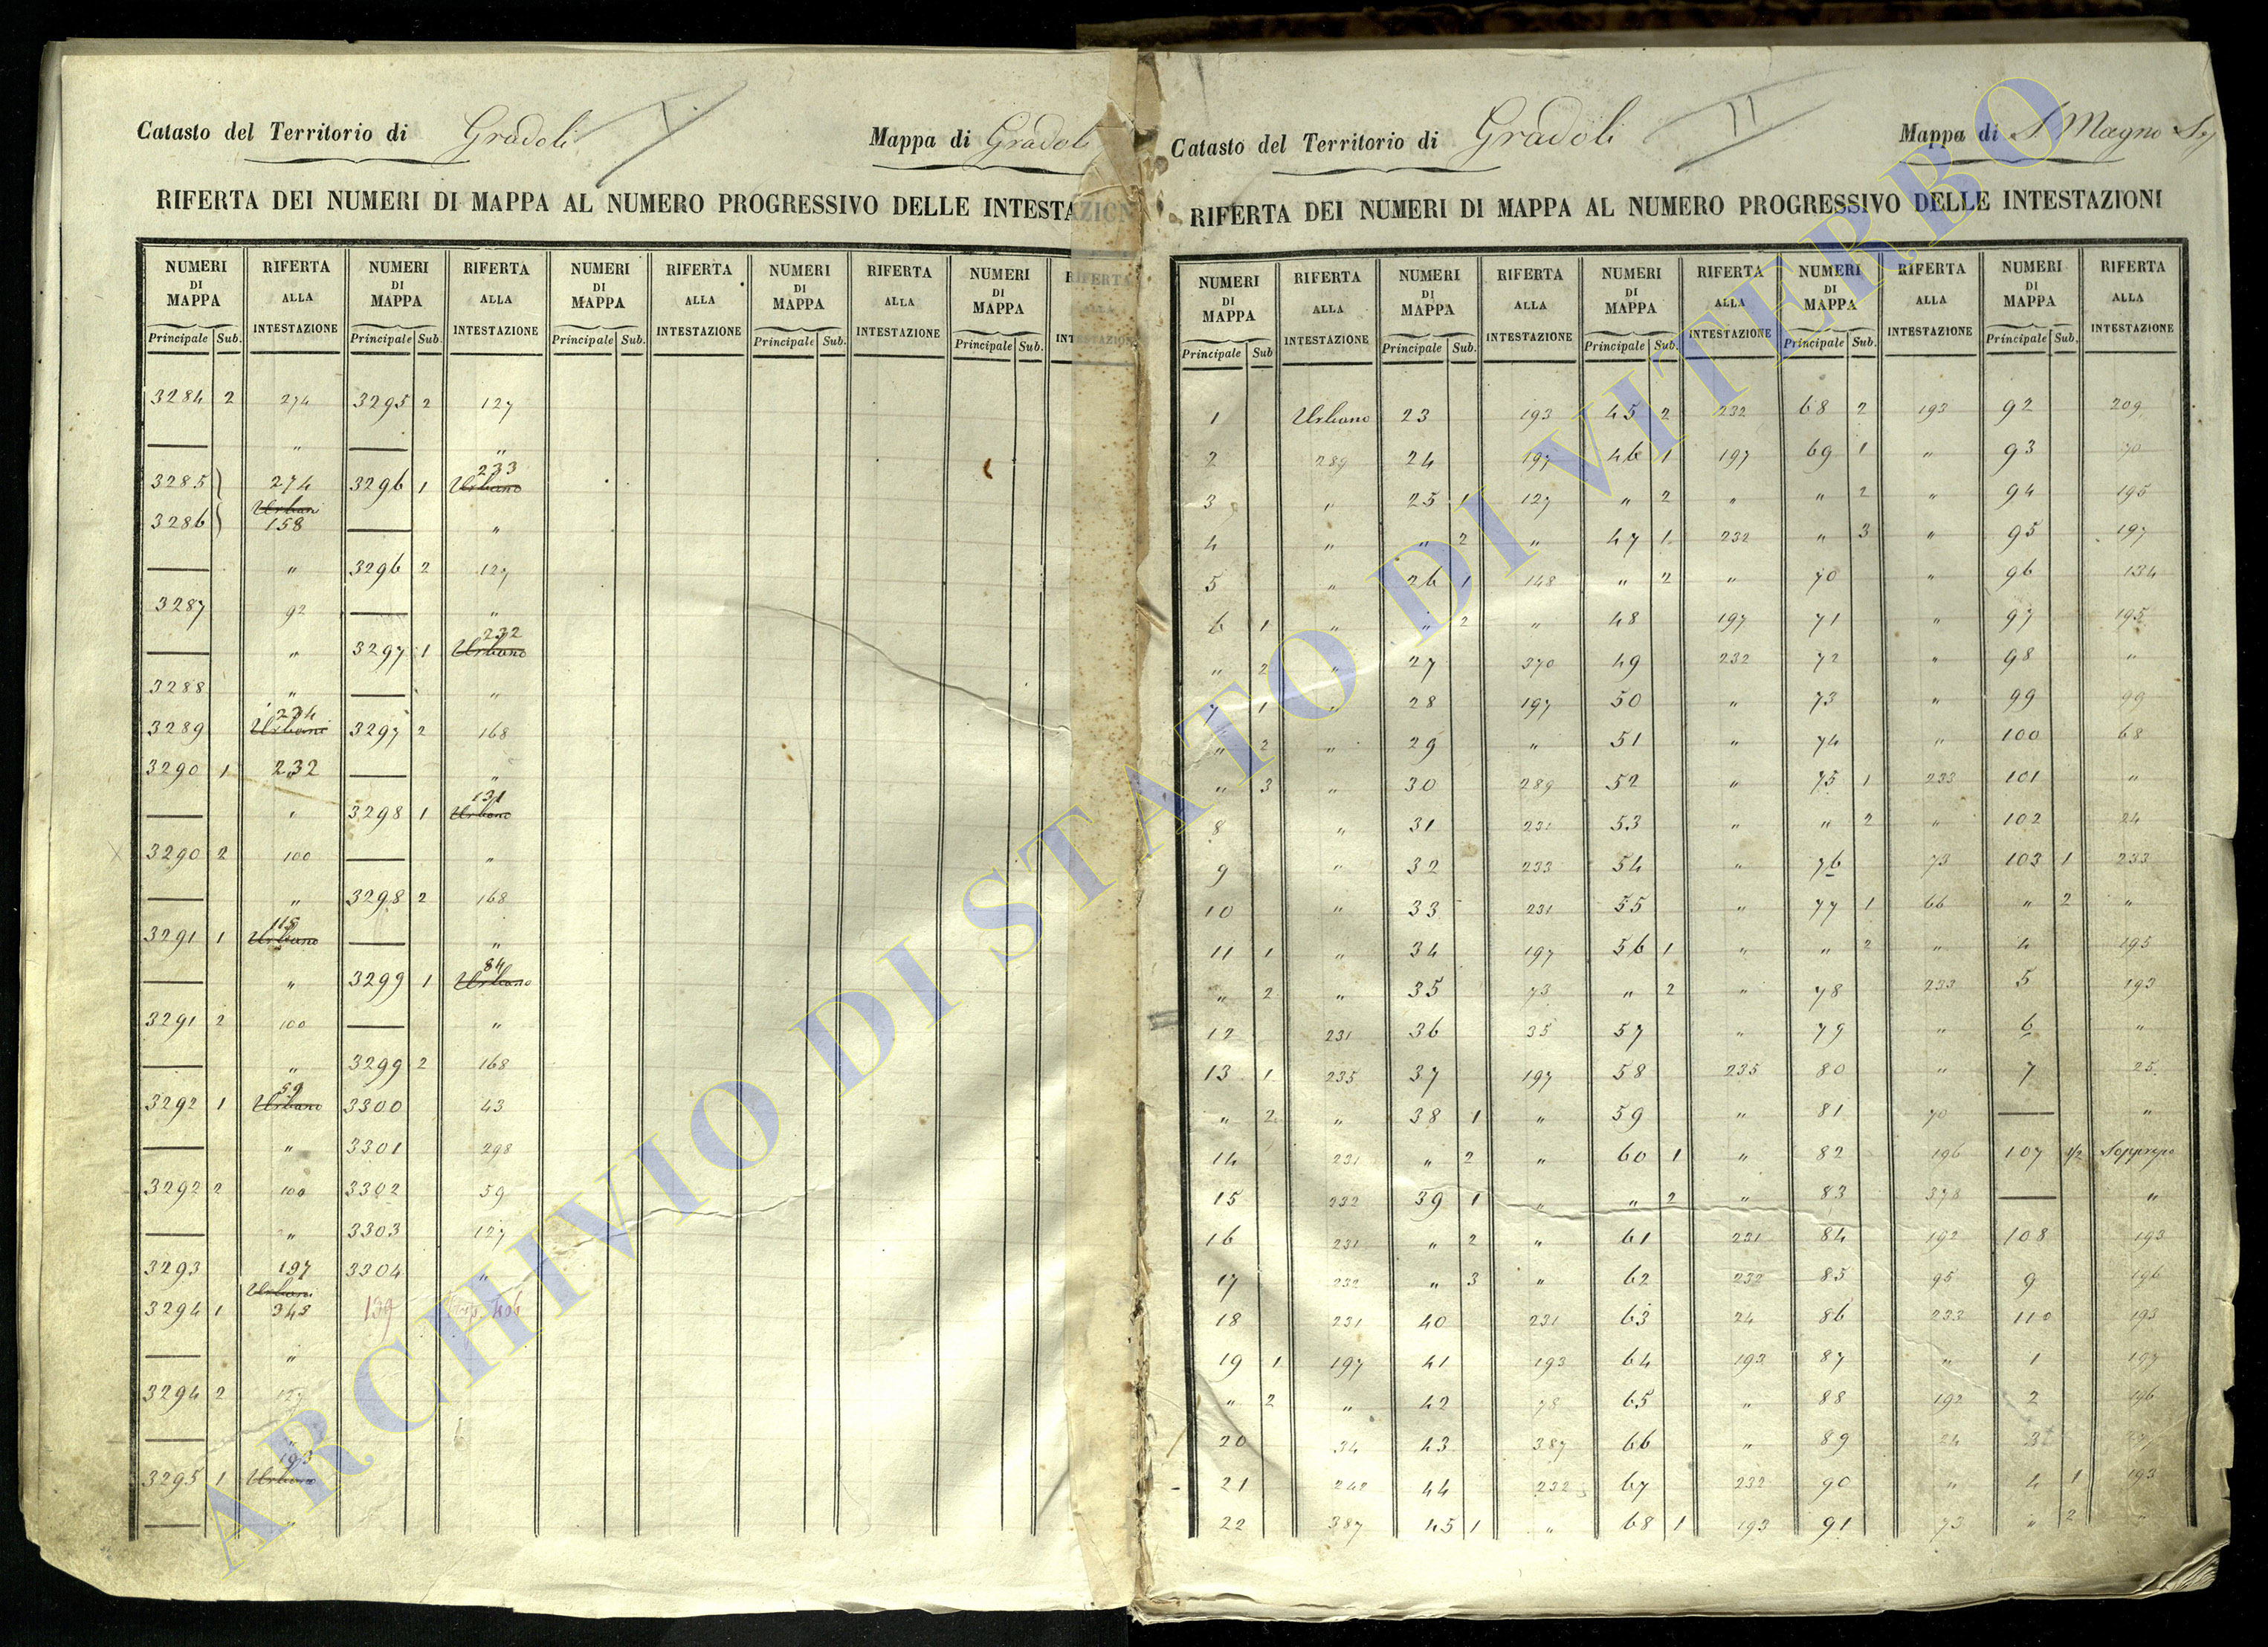 Catasto del Territorio di Gradoli I Mappa di Gradoli
RIFERTA DEI NUMERI DI MAPPA AL NUMERO PROGRESSIVO DELLE INTESTAZION
NUMERI DI MAPPA RIFERTA ALLA INTESTAZIONE NUMERI DI MAPPA RIFERTA ALLA INTESTAZIONE NUMERI DI MAPPA RIFERTA ALLA INTESTAZIONE NUMERI DI MAPPA RIFERTA ALLA INTESTAZIONE NUMERI DI MAPPA RIFERTA ALLA INTESTAZIONE
Principale Sub. Principale Sub. Principale Sub. Principale Sub. Principale Sub.
3284 2 274 3295 2 127
— " — "
233
3285 274 3296 1 Urbano
Urbani
3286 158 — "
— " 3296 2 127
3287 92 — "
232
— " 3297 1 Urbano
3288 " — "
234
3289 Urbani 3297 2 168
3290 1 232 — "
131
— " 3298 1 Urbano
3290 2 100 — "
— " 3298 2 168
115
3291 1 Urbano — "
84
— " 3299 1 Urbano
3291 2 100 — "
— " 3299 2 168
59
3292 1 Urbano 3300 43
— " 3301 298
3292 2 100 3302 59
— " 3303 127
3293 197 3304 "
Urbani
3294 1 348 139
— "
3294 2 127
— "
193
3295 1 Urbano
— "
Catasto del Territorio di Gradoli II Mappa di S. Magno
RIFERTA DEI NUMERI DI MAPPA AL NUMERO PROGRESSIVO DELLE INTESTAZIONI
NUMERI DI MAPPA RIFERTA ALLA INTESTAZIONE NUMERI DI MAPPA RIFERTA ALLA INTESTAZIONE NUMERI DI MAPPA RIFERTA ALLA INTESTAZIONE NUMERI DI MAPPA RIFERTA ALLA INTESTAZIONE NUMERI DI MAPPA RIFERTA ALLA INTESTAZIONE
Principale Sub Principale Sub. Principale Sub. Principale Sub. Principale Sub.
1 Urbano 23 193 45 2 232 68 2 193 92 209
2 289 24 197 46 1 197 69 1 " 93 70
3 " 25 1 127 " 2 " " 2 " 94 195
4 " " 2 " 47 1 232 " 3 " 95 197
5 " 26 1 148 " 2 " 70 " 96 134
6 1 " " 2 " 48 197 71 " 97 195
" 2 " 27 370 49 232 72 " 98 "
7 1 " 28 197 50 " 73 " 99 99
" 2 " 29 " 51 " 74 " 100 68
" 3 " 30 289 52 " 75 1 233 101 "
8 " 31 231 53 " " 2 " 102 24
9 " 32 233 54 " 76 73 103 1 233
10 " 33 231 55 " 77 1 66 " 2 "
11 1 " 34 197 56 1 " " 2 " 4 195
" 2 " 35 73 " 2 " 78 233 5 193
12 231 36 35 57 " 79 " 6 "
13 1 235 37 197 58 235 80 " 7 25
" 2 " 38 1 " 59 " 81 70 — "
14 231 " 2 " 60 1 " 82 196 107 1/2 Soppresso
15 232 39 1 " " 2 " 83 378 — "
16 231 " 2 " 61 231 84 192 108 193
17 232 " 3 " 62 232 85 95 9 196
18 231 40 231 63 24 86 233 110 193
19 1 197 41 193 64 192 87 " 1 197
" 2 " 42 78 65 " 88 192 2 196
20 34 43 387 66 " 89 24 3
21 242 44 232 67 232 90 " 4 1 193
22 387 45 1 " 68 1 193 91 73 " 2 "
ARCHIVIO DI STATO DI VITERBO